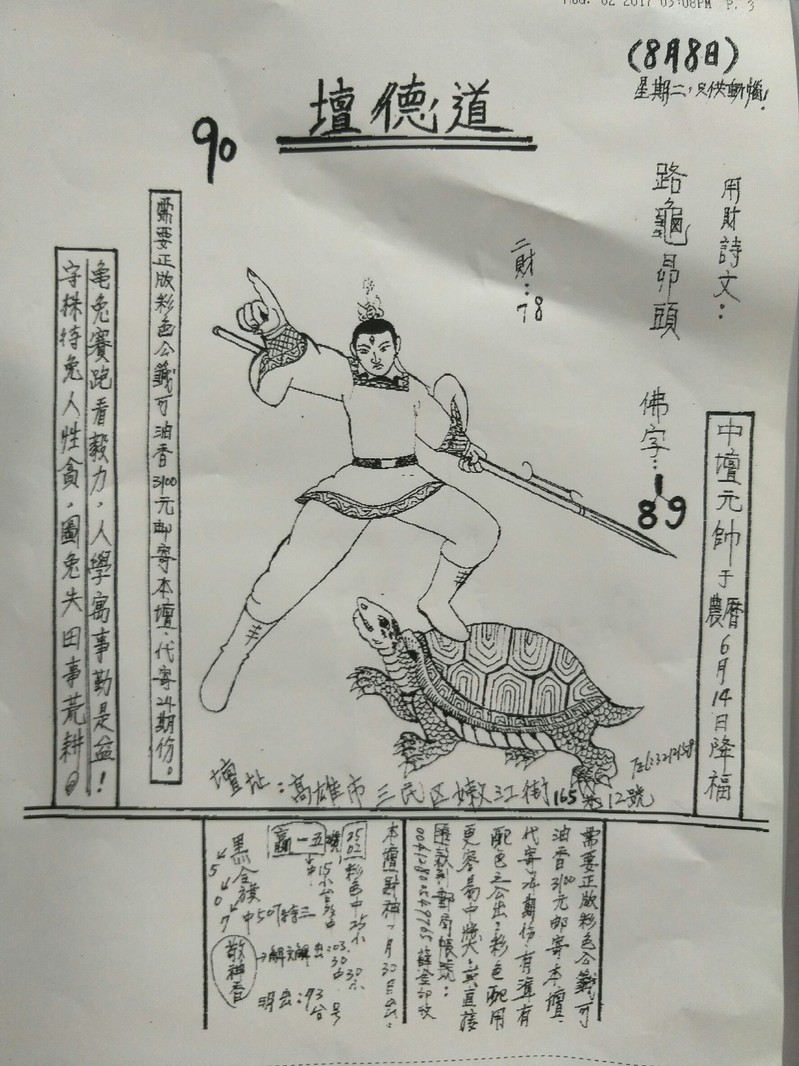 AUG. 02 2017 03:08PM P. 3
(8月8日)
星期二,只供
壇德道
90
用財詩文:
路龜昂頭
佛字:
1
89
二財:
78
中壇元帥于農曆6月14日降福
需要正版彩色公籤可油香3100元邮寄本壇.代寄24期份。
龟兔賽跑看毅力,人學寓事勤是益!
守株待兔人性貪,圖兔失田事荒耕。
壇址:高雄市三民区嫩江街165巷12號
需要正版彩色公籤可
油香3100元邮寄本壇.
代寄24期份.有準有
配色之公出:彩色配用
更容易中獎.
匯款郵局帳號:
本壇財神1月30日出:
2502
彩色中25
贏一五
黑令旗
5
0
7
中507特三
敬神香
明出:93
号